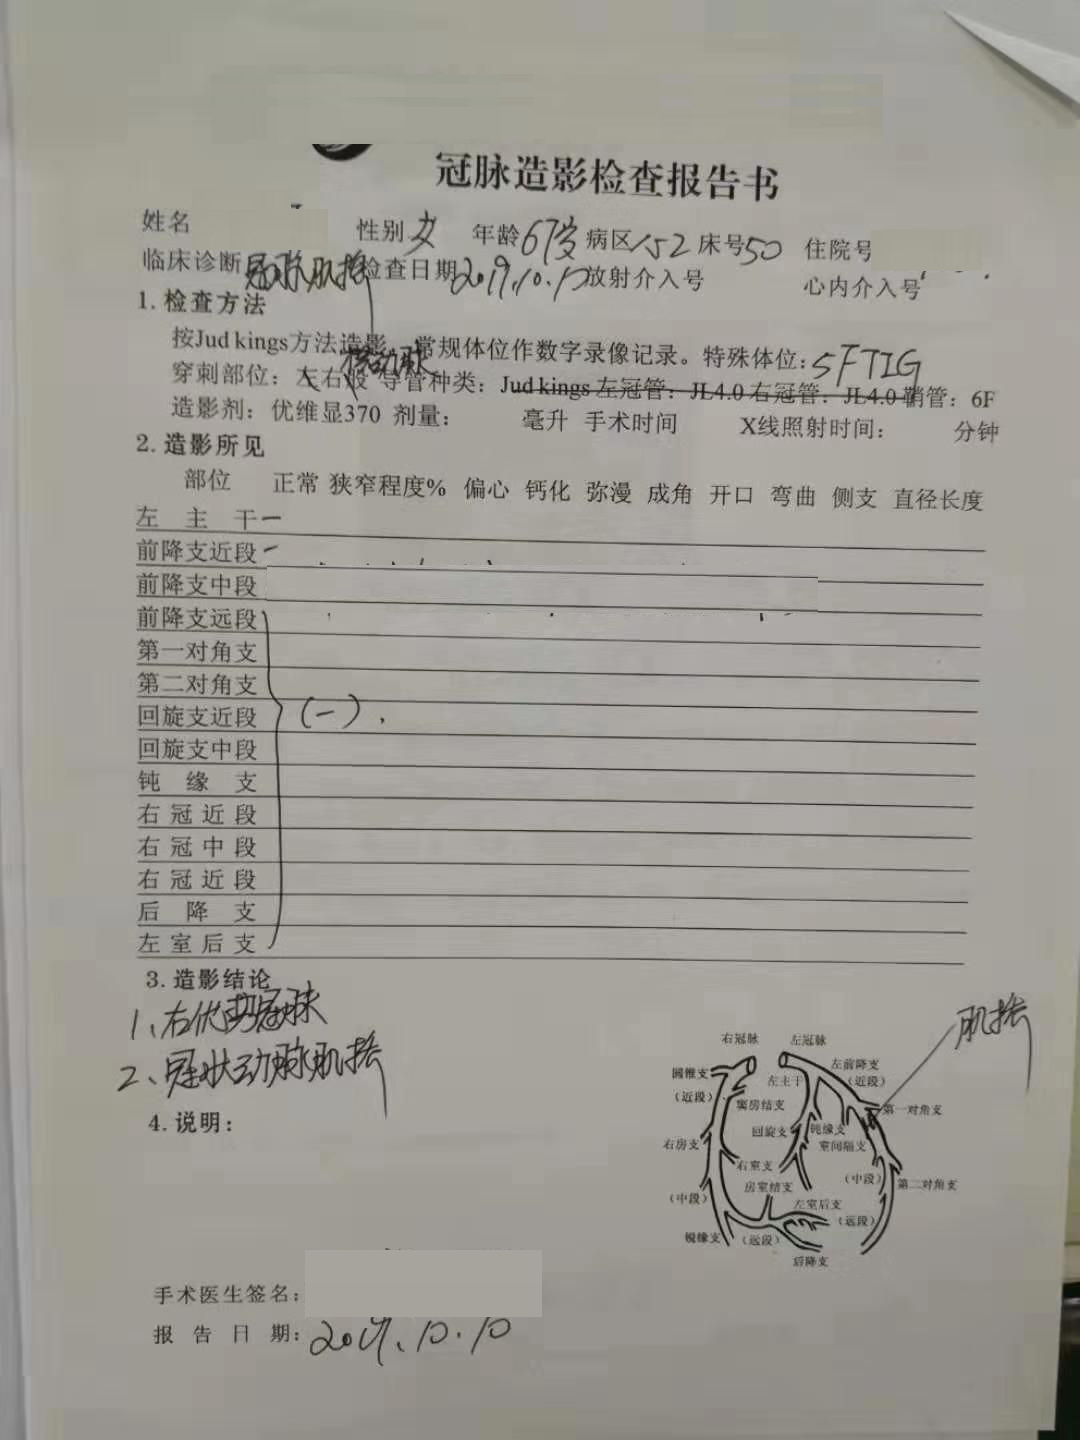 冠脉造影检查报告书
姓名 性别 女 年龄 67岁 病区 152 床号 50 住院号
临床诊断 冠脉肌桥 检查日期 2019.10.10 放射介入号 心内介入号
1.检查方法
按Jud kings方法造影、常规体位作数字录像记录。特殊体位: 5FTIG
穿刺部位: 左右股 桡动脉 导管种类: Jud kings 左冠管: JL4.0 右冠管: JL4.0 鞘管: 6F
造影剂: 优维显370 剂量: 毫升 手术时间 X线照射时间: 分钟
2.造影所见
部位 正常 狭窄程度% 偏心 钙化 弥漫 成角 开口 弯曲 侧支 直径长度
左主干 一
前降支近段 一
前降支中段
前降支远段
第一对角支
第二对角支
回旋支近段 (一).
回旋支中段
钝缘支
右冠近段
右冠中段
右冠近段
后降支
左室后支
3.造影结论
1、右优势冠脉
2、冠状动脉肌桥
肌桥
右冠脉 左冠脉
圆锥支 左主干 左前降支
(近段) 窦房结支 (近段) 第一对角支
回旋支 钝缘支
右房支 室间隔支
右室支
房室结支 (中段) 第二对角支
(中段) 左室后支
(远段)
锐缘支 (远段)
后降支
4.说明:
手术医生签名:
报告日期: 2019.10.10